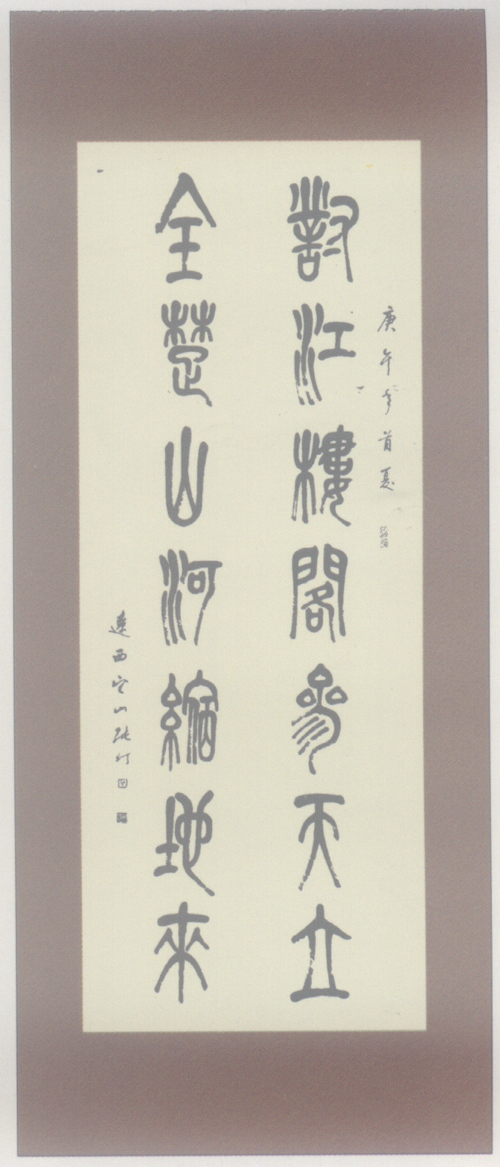 庚午年首夏
對江樓閣參天立
全楚山河縮地來
遼西